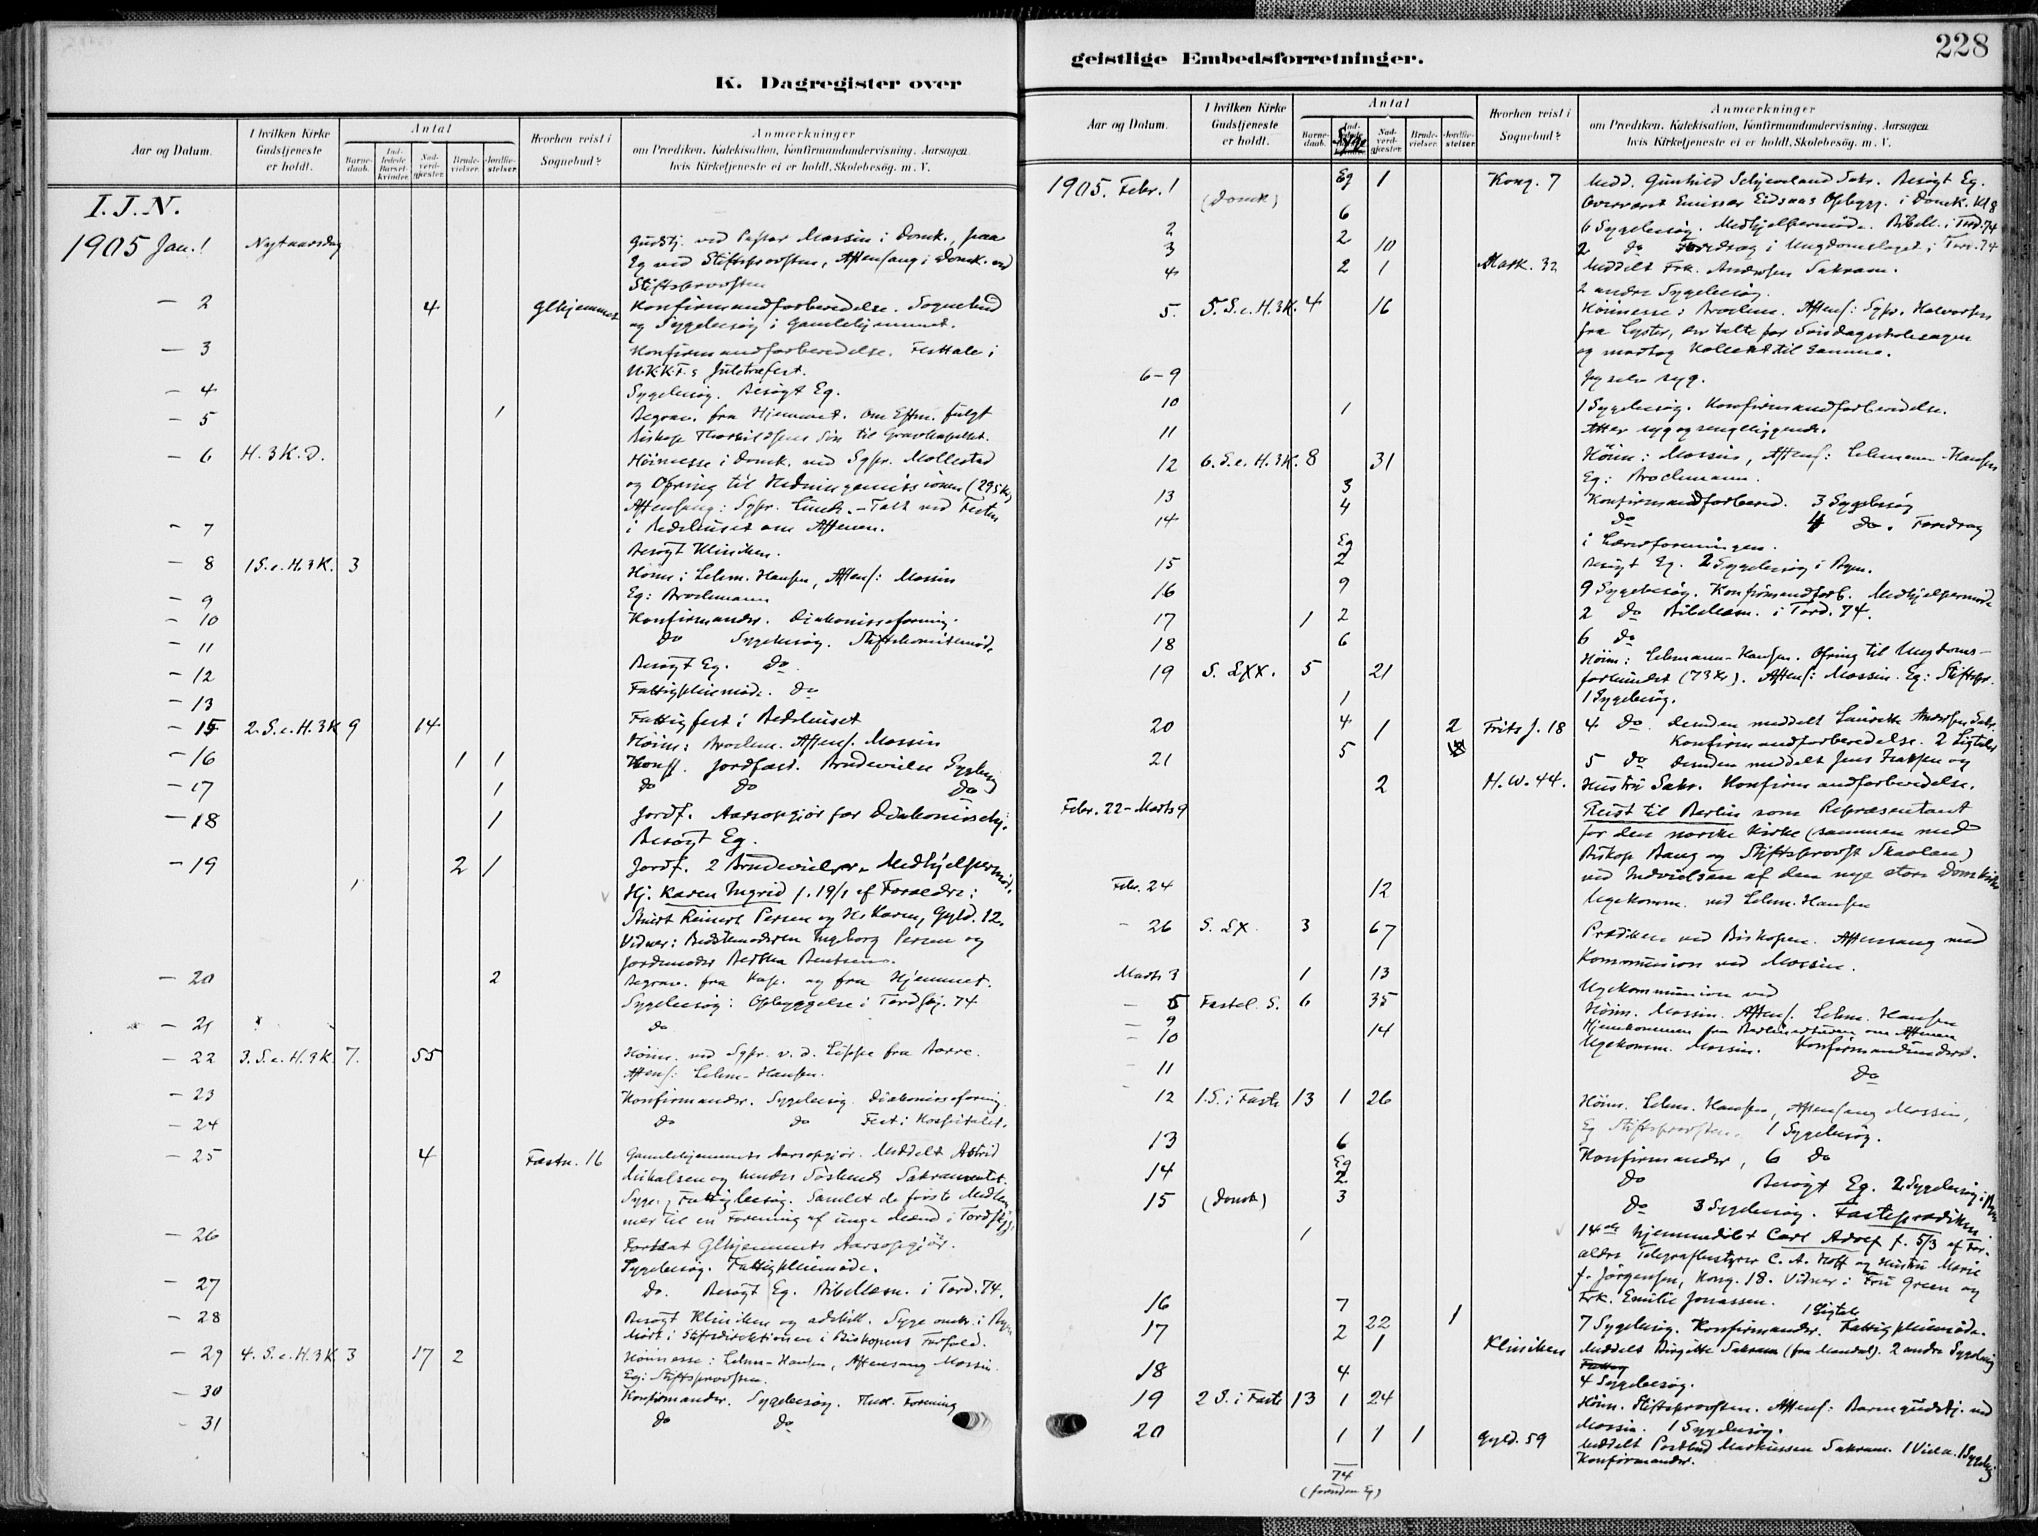 228
K. Dagregister over
geistlige Embedsforretninger.
Aar og Datum.
I hvilken Kirke Gudstjeneste er holdt.
Antal
Barnedaab.
Indledede Barselkvinder.
Nadverdgjæster.
Brudevielser.
Jordfæstelser.
Hvorhen reist i Sognebud?
Anmærkninger
om Prædiken, Katekisation, Konfirmandundervisning, Aarsagen
hvis Kirketjeneste ei er holdt, Skolebesøg, m. V.
I. J. N.
1905 Jan. 1 Nytaarsdag Gudstj. ved Pastor Mossin i Domk., paa
Eg ved Stiftsprovsten, Aftensang i Domk. ved
Stiftsprovsten
– 2 4 Glhjemmet Konfirmandforberedelse. Sognebud
og Sygebesøg i Gamlehjemmet.
– 3 Konfirmandforberedelse. Festtale i
U.K.K.F.s Juletræfest.
– 4 Sygebesøg. Besøgt Eg.
– 5 1 Begrav. fra Hjemmet. Om Eftm. fulgt
Biskop Thorkildsens Søn til Gravkapellet.
– 6 H. 3 K. D. Høimesse i Domk. ved Sgpr. Mollestad
og Ofring til Hedningemissionen (295 Kr)
Aftensang: Sgpr. Lunde. – Talt ved Festen
i Bedehuset om Aftenen.
– 7 Besøgt Kliniken.
– 8 1 S. e. H. 3 K. 3 Høim: Lehm. Hansen, Aftens: Mossin
Eg: Brodemann
– 9 Konfirmander. Diakonisseforening.
– 10 do Sygebesøg. Stiftskomitemøde.
– 11 Besøgt Eg. do
– 12 Fattigpleiemøde. do
– 13 Fattigfest i Bedehuset
– 15 2. S. e. H. 3 K 9 14 Høim: Brodem. Aftens. Mossin
– 16 1 1 Konf. Jordfæst. Brudevielse Sygebesøg
– 17 1 do do do
– 18 1 Jordf. Aarsopgjør for Diakonissehj.
Besøgt Eg.
– 19 2 1 Jordf. 2 Brudevielser. Medhjelpermøde.
1 Hj. Karen Ingrid f. 19/1 af Forældre:
Reinert Persen og H. Karen, Gyld. 12.
Vidner: Bedstemoderen Ingeborg Persen og
Jordemoder Bertha Bentsen.
– 20 2 Begrav. fra Kap. og fra Hjemmet.
Sygebesøg: Opbyggelse i Tordskj. 74
– 21 do
– 22 3. S. e. H. 3 K. 7. 55 Høim. ved Sgpr. v. d. Lippe fra Borre.
Aftens: Lehm. Hansen.
– 23 Konfirmander. Sygebesøg. Diakonisseforening.
– 24 do do Fest i Hospitalet.
– 25 4 Festn. 16 Gamlehjemmets Aarsopgjør. Meddelt Astrid
Mikalsen og hendes Søskende Sakramentet.
Syge- Fattigbesøg. Samlet de første Medlem-
mer til en Forening af unge Mænd i Tordskj.
– 26 Fortsat Glhjemmets Aarsopgjør.
Sygebesøg. Fattigpleiemøde.
– 27 do. Besøgt Eg. Bibellæsn. i Tord. 74.
– 28 Besøgt Kliniken og adskill. Syge omkr. i Byen
Møde i Stiftsdirektionen i Biskopens Forfald.
– 29 4. S. e. H. 3 K 3 17 2 Høimesse: Lehm. Hansen, Aftensang Mossin.
Eg: Stiftsprovsten.
– 30 Konfirmander. Sygebesøg. Forening
– 31 do do
Aar og Datum.
I hvilken Kirke Gudstjeneste er holdt.
Antal
Barnedaab.
Syge
Nadverdgjæster.
Brudevielser.
Jordfæstelser.
Hvorhen reist i Sognebud?
Anmærkninger
om Prædiken, Katekisation, Konfirmandundervisning, Aarsagen
hvis Kirketjeneste ei er holdt, Skolebesøg, m. V.
1905. Febr. 1 (Domk) Eg 1 Kong. 7 Medd. Gunhild Schjeveland Sakr. Besøgt Eg.
Overværet Emissær Eidsaas Opbygg. i Domk. Kl 8
2 6 6 Sygebesøg. Medhjelpermøde. Bibell. i Tord. 74
3 2 10 2 do Foredrag i Ungdomslaget i Tord. 74
4 2 1 Mark. 32 Meddelt Frk. Andersen Sakram.
2 andre Sygebesøg.
5. 5. S. e. H. 3 K. 4 16 Høimesse: Brodem. Aftens: Sgpr. Halvorsen
fra Lyster, der talte for Søndagsskolesagen
og modtog Kollekt til samme.
6–9 Jeg selv syg.
10 1 1 Sygebesøg. Konfirmandforberedelse.
11 Atter syg og sengeliggende.
12 6. S. e. H. 3 K. 8 31 Høim: Mossin, Aftens: Lehmann-Hansen
Eg: Brodemann.
13 3 Konfirmandforbered. 3 Sygebesøg
14 4 do 4 do. Foredrag
i Lærerforeningen.
15 Eg 2 Besøgt Eg. 2 Sygebesøg i Byen.
16 9 9 Sygebesøg. Konfirmandforb. Medhjelpermøde
17 1 2 2 do Bibellæsn. i Tord. 74.
18 6 6 do
19 S. LXX. 5 21 Høim: Lehmann-Hansen. Ofring til Ungdoms-
forbundet (73 Kr). Aftens: Mossin. Eg: Stiftspr.
1 1 Sygebesøg.
20 4 1 2 Frits J. 18 4 do. desuden meddelt Laurette Andersen Sakr.
Konfirmandforberedelse. 2 Ligtaler
21 5 5 do desuden meddelt Jens og
2 H. W. 44. Hustru Sakr. Konfirmandforberedelse.
Febr. 22 – Marts 9 Reist til Berlin som Repræsentant
for den norske Kirke (sammen med
Biskop Bang og Stiftsprovst Skaolan)
ved Indvielsen af den nye store Domkirke
Febr. 24 12 Ugekomm. ved Lehm. Hansen
– 26 S. LX. 3 67 Prædiken ved Biskopen. Aftensang med
Kommunion ved Mossin.
Marts 3 1 13 Ugekommunion ved
– 5 Fastel. S. 6 35 Høim. Mossin. Aftens. Lehm. Hansen
– 9 Hjemkommen fra Berlinerturen om Aftenen
– 10 14 Ugekomm. Mossin. Konfirmandunderv.
– 11 do
12 1. S. i Faste 13 1 26 Høim. Lehm. Hansen, Aftensang Mossin,
Eg Stiftsprovsten. 1 Sygebesøg.
13 6 Konfirmander, 6 do
14 Eg 2 do Besøgt Eg. 2 Sygebesøg i Byen
15 (Domk) 3 do 3 Sygebesøg. Fasteprædiken.
1 14 de hjemmedøbt Carl Adolf f. 5/3 af For-
ældre Telegrafbestyrer C. A. Hoff og Hustru Marie
f. Jørgensen, Kong. 18. Vidner: Fru Green og
Frk. Emilie Jonassen.
16 7 1 7 Sygebesøg. Konfirmander. Fattigpleiemøde. 1 Ligtale
17 2 22 1 Kliniken Meddelt Birgitte Sakram (fra Mandal). 2 andre Sygebesøg
18 4 4 Sygebesøg.
19 2 S. i Faste 13 1 24 Høim. Stiftsprovsten. Aftens: Barnegudstj. ved
Mossin. 1 Sygebesøg.
20 1 1 1 Gyld. 59 Meddelt Postbud Markussen Sakram. 1 Vielse. 1 Sygebesøg
Konfirmander.
74
(foruden Eg)